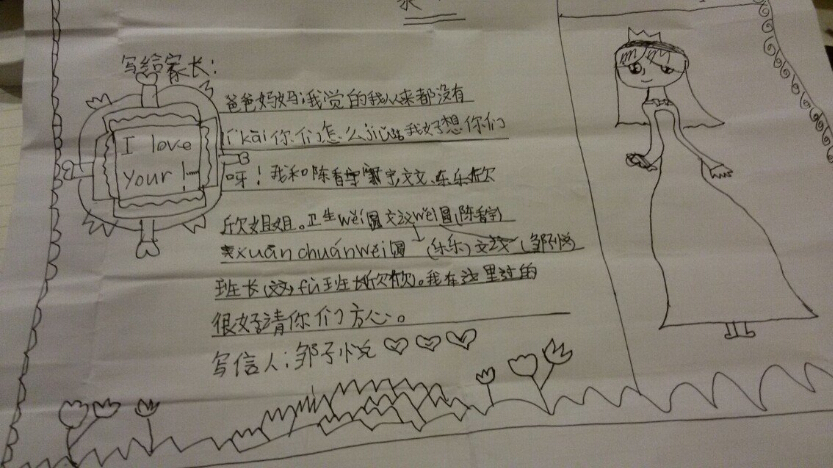 写给家长:
I love
your !
爸爸妈妈:我觉的我从来都没有
lí kāi 你们怎么 jiǔ。我好想你们
呀!我和陈香宁文文、乐乐欣
欣姐姐。卫生wěi圆文议wěi圆(陈香宁)
xuān chuánwěi圆 (乐乐) (邹子悦)
班长(文文)fù班长(欣欣)。我在这里过的
很好请你们方心。
写信人:邹子悦